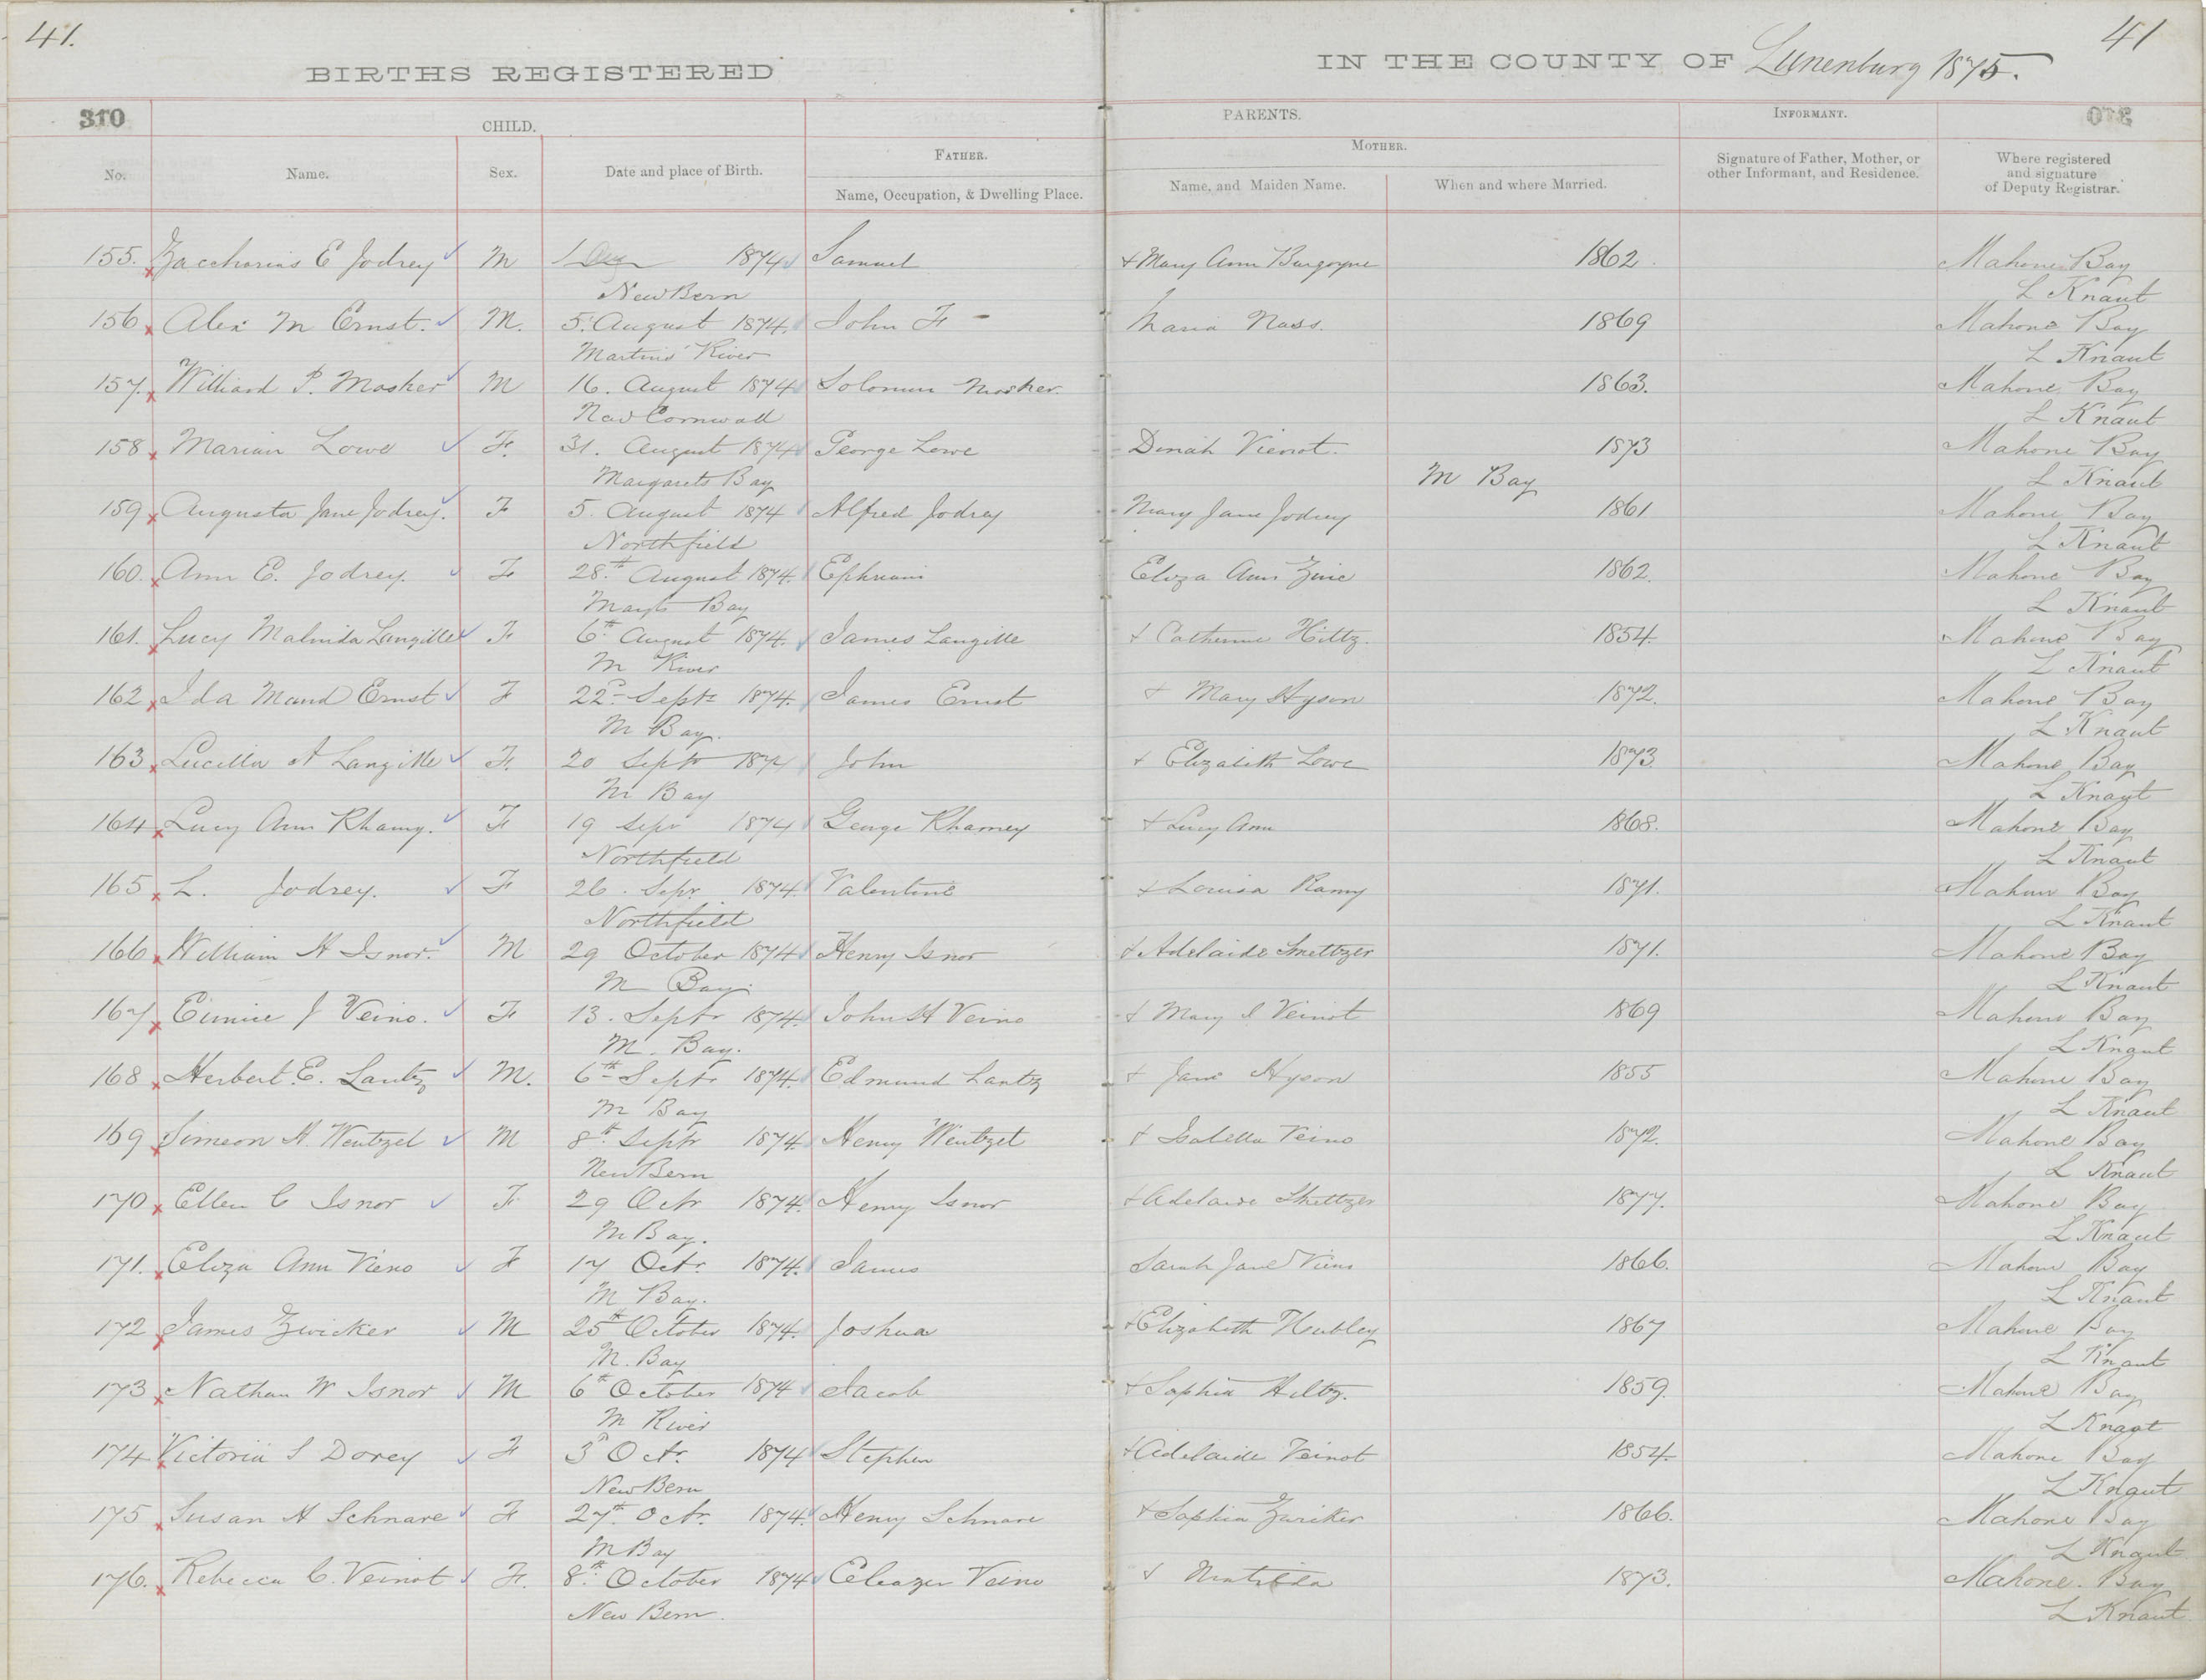 41.
41
BIRTHS REGISTERED
IN THE COUNTY OF Lunenburg 1875.
310
CHILD.
PARENTS.
INFORMANT.
FATHER.
MOTHER.
No.
Name.
Sex.
Date and place of Birth.
Name, Occupation, & Dwelling Place.
Name, and Maiden Name.
When and where Married.
Signature of Father, Mother, or other Informant, and Residence.
Where registered and signature of Deputy Registrar.
155. Zaccharias E Jodrey M 1 Aug 1874 Samuel + Mary Ann Burgoyne 1862. Mahone Bay
New Bern L Knaut
156 Alex M Ernst. M. 5. August 1874. John F - Maria Nass. 1869 Mahone Bay
Martins River L Knaut
157. Williard P. Mosher M 16. August 1874 Solomon Mosher. 1863. Mahone Bay
New Cornwall L Knaut
158 Marian Lowe F. 31. August 1874 George Lowe Dinah Vienot. 1873 Mahone Bay
Margarets Bay M Bay L Knaut
159 Augusta Jane Jodrey. F 5. August 1874 Alfred Jodrey Mary Jane Jodrey 1861 Mahone Bay
Northfield L Knaut
160. Ann E. Jodrey. F 28.th August 1874. Ephriam Eliza Ann Zinc 1862. Mahone Bay
Bay L Knaut
161. Lucy Malinda Langille F 6th August 1874. James Langille + Catherine Hiltz. 1854. Mahone Bay
M River L Knaut
162 Ida Maud Ernst F 22d Sept 1874. James Ernst + Mary Hyson 1872. Mahone Bay
M Bay. L Knaut
163 Lucilla A Langille F. 20 Septr 1874 John + Elizabeth Lowe 1873 Mahone Bay
M Bay L Knaut
164 Lucy Ann Rhamy. F 19 Sepr 1874 George Rhamey + Lucy Ann 1868. Mahone Bay
Northfield L Knaut
165 L. Jodrey. F 26. Sepr. 1874. Valentine + Louisa Ramy 1871. Mahone Bay
Northfield L Knaut
166 William H Isnor. M 29 October 1874 Henry Isnor + Adelaide Smeltzer 1871. Mahone Bay
M Bay. L Knaut
167 Eunice J Veino. F 13. Septr 1874. John H Veino + Mary Veinot 1869 Mahone Bay
M. Bay. L Knaut
168 Herbert E. Lantz M. 6th Septr 1874. Edmund Lantz + Jane Hyson 1855 Mahone Bay
M Bay L Knaut
169 Simeon H. Wentzel M 8th Septr 1874. Henry Wentzel + Isabella Veino 1872. Mahone Bay
New Bern L Knaut
170 Ellen C Isnor F 29 Octr 1874. Henry Isnor + Adelaide 1877. Mahone Bay
M Bay. L Knaut
171. Eliza Ann Vieno F 17 Octr. 1874. James Sarah Jane 1866. Mahone Bay
M Bay. L Knaut
172 James Zwicker M 25th October 1874. Joshua + Elizabeth Hubley 1867 Mahone Bay
M. Bay L Knaut
173 Nathan W Isnor M 6th October 1874 Jacob + Sophia Hiltz. 1859. Mahone Bay
M River L Knaut
174 Victoria S Dorey F 3d Octr. 1874 Stephen + Adelaide Veinot 1854. Mahone Bay
New Bern L Knaut
175 Susan A Schnare F 27th Octr. 1874. Henry Schnare + Sophia Zwicker 1866. Mahone Bay
M Bay L Knaut
176. Rebecca C. Veinot F. 8th October 1874 Eleazer Veino + Matilda 1873. Mahone Bay
New Bern. L Knaut